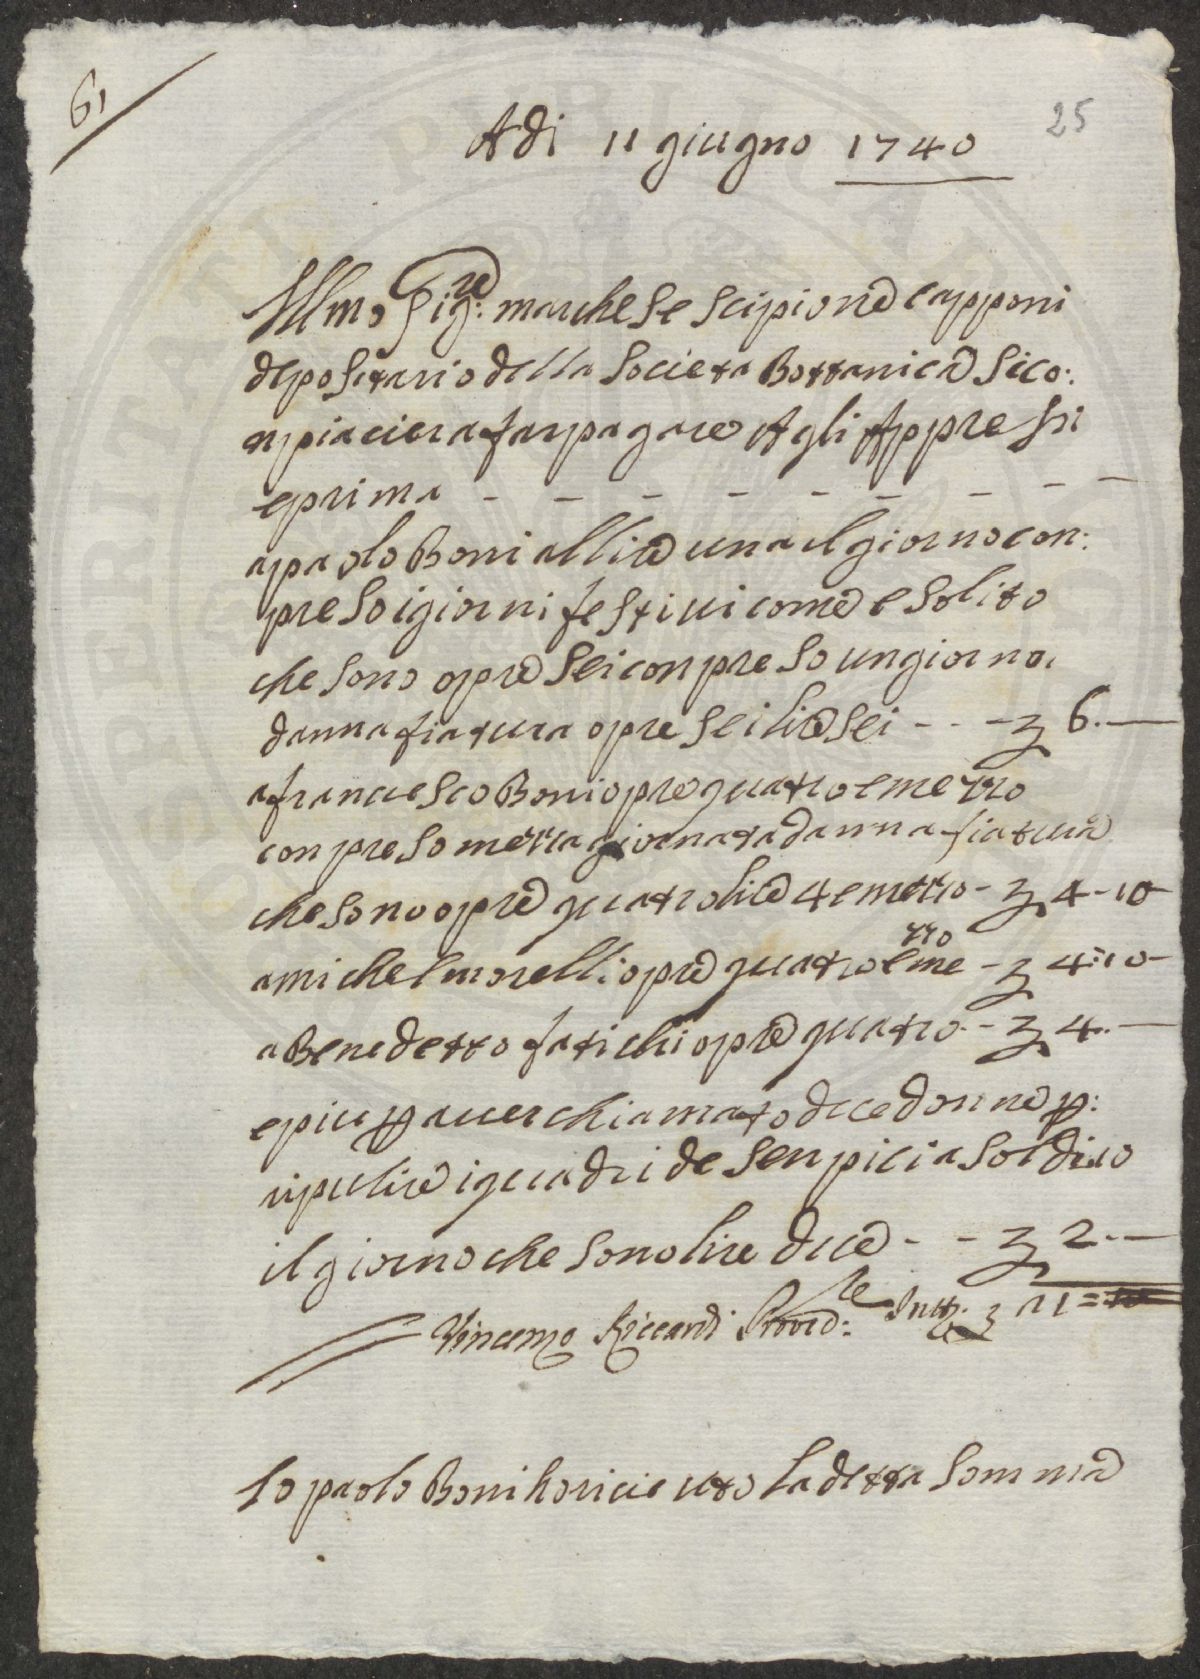 61
25
Adi 11 giugno 1740
Illmo Sig:re marchese scipione capponi
depositario della Societa Bottanica Sico:
npiaciera far pagare Agli Appressi
eprima - - - - - - - - -
apaolo Boni allire una il giorno con:
preso igiorni festiui come e solito
che sono opre sei conpreso un giorno
dannafiatura opre sei lire sei - - - 6.—
afrancesco Boni opre quatro e mezzo
conpreso mezza giornata dannafiatura
che sono opre quatro lire 4 e mezzo - 4-10
amichel morelli opre quatro e mezzo - 4:10-
a Benedetto fatichi opre quatro - 4.—
epiu p auer chiamato duce donne p:
ripulire iquadri de senpici a soldi 10
il giorno che sono lire duce - - 2.—
Vincenzo Riccardi Proved:re Intt: 21=
Io paolo Boni ho riceuto la detta somma